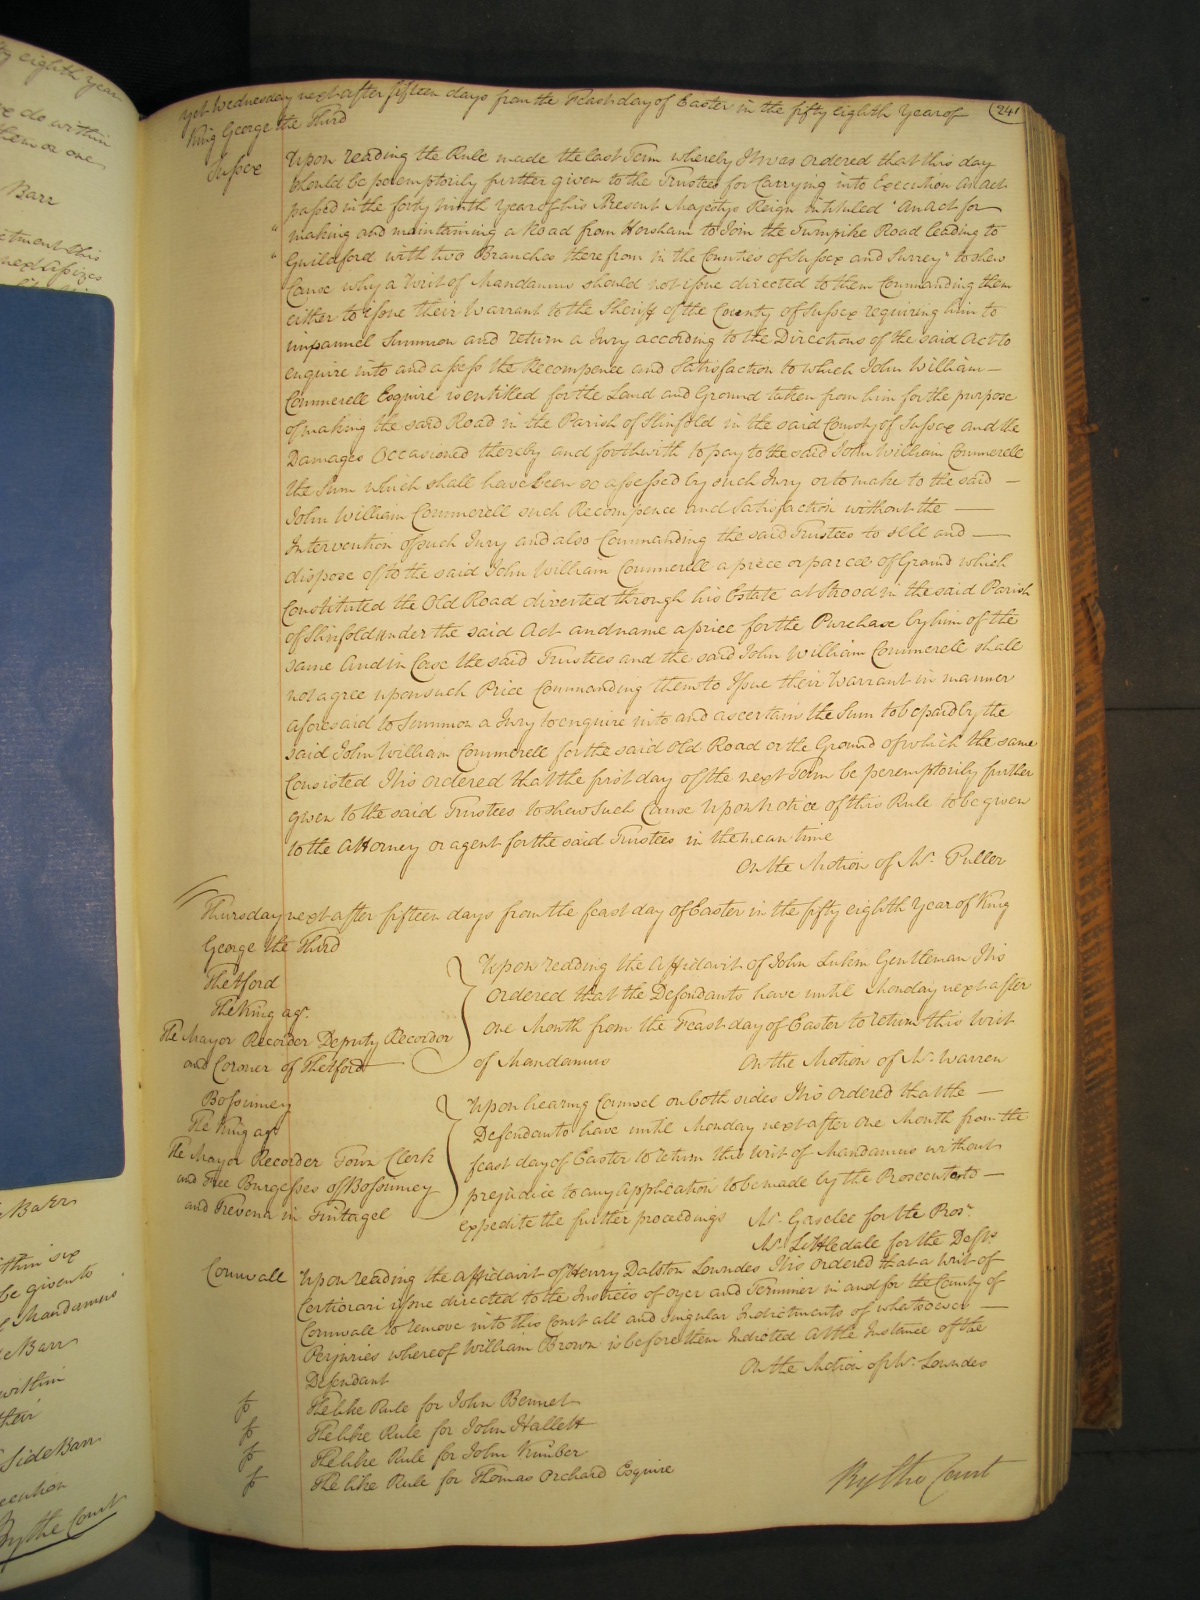 fty eighth year
do within
them or one
Barr
ctment this
next Assizes
e Barr
ithin six
be given to
Mandamus
de Barr
within
their
Side Barr
ecution
By the Court
241
yet Wednesday next after fifteen days from the Feast day of Easter in the fifty eighth Year of
King George the Third
Sussex
Upon reading the Rule made the last Term whereby It was ordered that this day
should be peremptorily further given to the Trustees for Carrying into Execution an Act
passed in the forty ninth Year of his Present Majestys Reign intituled "An Act for
" making and maintaining a Road from Horsham to Join the Turnpike Road leading to
" Guildford with two Branches therefrom in the Counties of Sussex and Surrey" to shew
Cause why a Writ of Mandamus should not issue directed to them Commanding them
either to Issue their Warrant to the Sheriff of the County of Sussex requiring him to
impannel Summon and return a Jury according to the Directions of the said Act to
enquire into and assess the Recompence and Satisfaction to which John William
Commerell Esquire is entitled for the Land and Ground taken from him for the purpose
of making the said Road in the Parish of Slinfold in the said County of Sussex and the
Damages Occasioned thereby and forthwith to pay to the said John William Commerell
the Sum which shall have been so assessed by such Jury or to make to the said
John William Commerell such Recompence and Satisfaction without the
Intervention of such Jury and also Commanding the said Trustees to sell and
dispose of to the said John William Commerell a piece or parcel of Ground which
Constituted the Old Road diverted through his Estate at Strood in the said Parish
of Slinfold under the said Act and name a price for the Purchase by him of the
same And in Case the said Trustees and the said John William Commerell shall
not agree upon such Price Commanding them to Issue their Warrant in manner
aforesaid to Summon a Jury to enquire into and ascertain the Sum to be paid by the
said John William Commerell for the said Old Road or the Ground of which the same
Consisted It is ordered that the first day of the next Term be peremptorily further
given to the said Trustees to shew such Cause Upon Notice of this Rule to be given
to the Attorney or agent for the said Trustees in the mean time
On the Motion of Mr. Puller
Thursday next after fifteen days from the feast day of Easter in the fifty eighth Year of King
George the Third
Thetford
The King agt.
The Mayor Recorder Deputy Recorder
and Coroner of Thetford
Upon reading the Affidavit of John Gentleman It is
ordered that the Defendants have until Monday next after
one Month from the Feast day of Easter to return this Writ
of Mandamus On the Motion of Mr. Warren
Bossiney
The King agt
The Mayor Recorder Town Clerk
and Free Burgesses of Bossiney
and Trevena in Tintagel
Upon hearing Counsel on both sides It is ordered that the
Defendants have until Monday next after one Month from the
feast day of Easter to return this Writ of Mandamus without
prejudice to any Application to be made by the Prosecutor to
expedite the further proceedings Mr. Gaselee for the Prosr.
Mr. Littledale for the Defts
Cornwall
Upon reading the affidavit of Henry Dalston Lowndes It is ordered that a Writ of
Certiorari issue directed to the Justices of oyer and Terminer in and for the County of
Cornwall to remove into this Court all and singular Indictments of whatsoever
Perjuries whereof William Brown is before them Indicted At the Instance of the
Defendant On the Motion of Mr. Lowndes
The like Rule for John Bennet
The like Rule for John Hallett
The like Rule for John Kimber
The like Rule for Thomas Orchard Esquire
By the Court